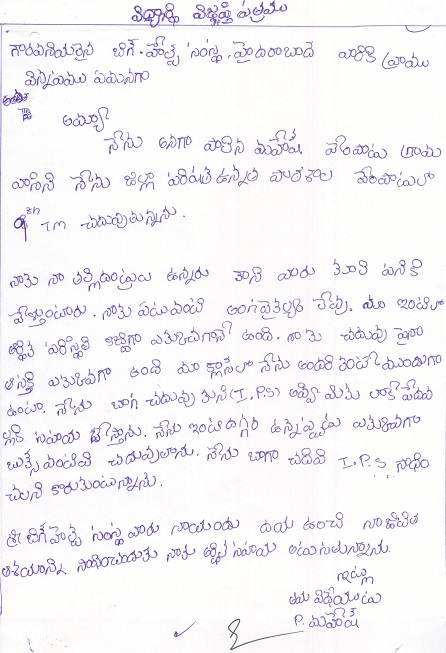 విద్యార్థి విజ్ఞప్తి పత్రము
గౌరవనీయులైన బిగ్-హెల్ప్ సంస్థ, హైదరాబాద్ వారికి వ్రాయు
విన్నపము ఏమనగా
అయ్యా
నేను అనగా పాలిన మహేష్ వేంపాడు గ్రామ
వాసిని నేను జిల్లా పరిషత్ ఉన్నత పాఠశాల వేంపాడులో
9th TM చదువుతున్నాను.
నాకు నా తల్లిదండ్రులు ఉన్నారు కాని వారు కూలి పనికి
వెళ్తుంటారు. నాకు ఎటువంటి అంగవైకల్యం లేవు. మా ఇంటిలో
ఆర్థిక పరిస్థితి కొద్దిగా ఎక్కువగానే ఉంది. నాకు చదువు పైనా
ఆసక్తి ఎక్కువగా ఉంది మా క్లాసులో నేను అందరి కంటే ముందుగా
ఉంటా. నేను బాగ చదువు కుని (I.P.S) అయ్యి మీకు లాకే పేదవ
ల్లకి సహాయ చేస్తాను. నేను ఇంటిదగ్గర ఉన్నప్పుడు ఎక్కువగా
బుక్స్ వంటివి చదువుతాను. నేను బాగా చదివి I.P.S సాధిం
చాలని కోరుకుంటున్నాను.
శ్రీ బిగ్ హెల్ప్ సంస్థ వారు నాయందు దయ ఉంచి నా జీవిత
ఆశయాన్ని సాధించుటకు నాకు ఆర్థిక సహాయ అడుగుతున్నాను.
ఇట్లు
తమ విధేయుడు
P. మహేష్